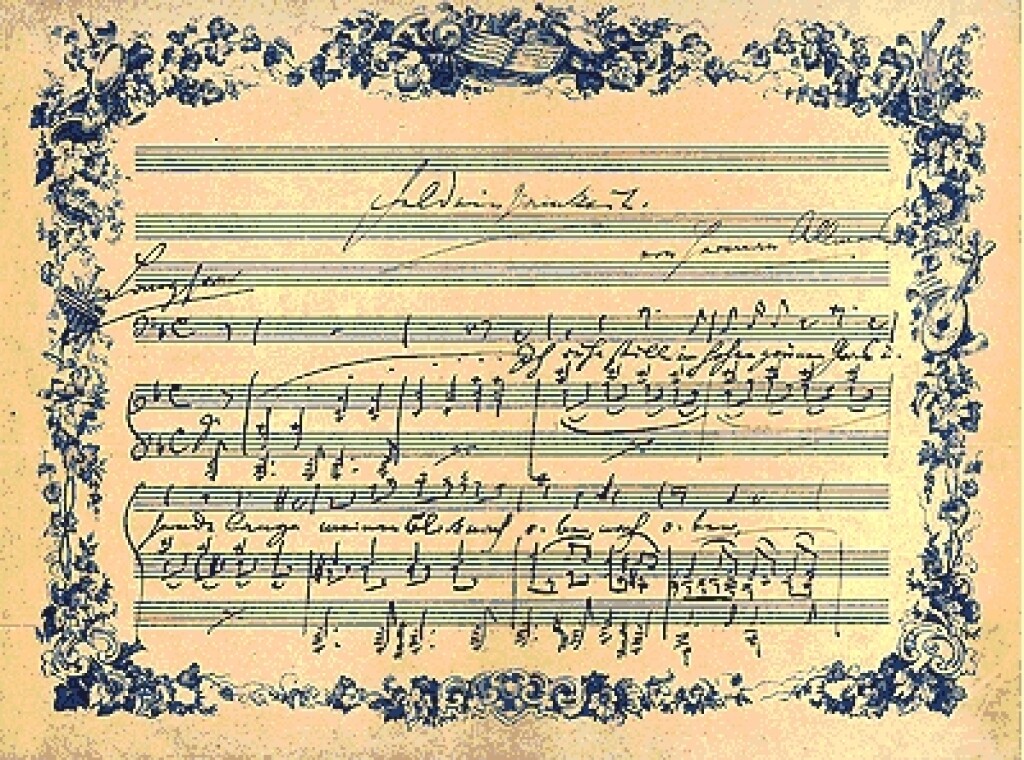 Feldeinsamkeit.
von Hermann Allmers
Langsam
Ich ruhe still im hohen grünen Gras u.
sende lange meinen Blick nach o-ben nach o-ben